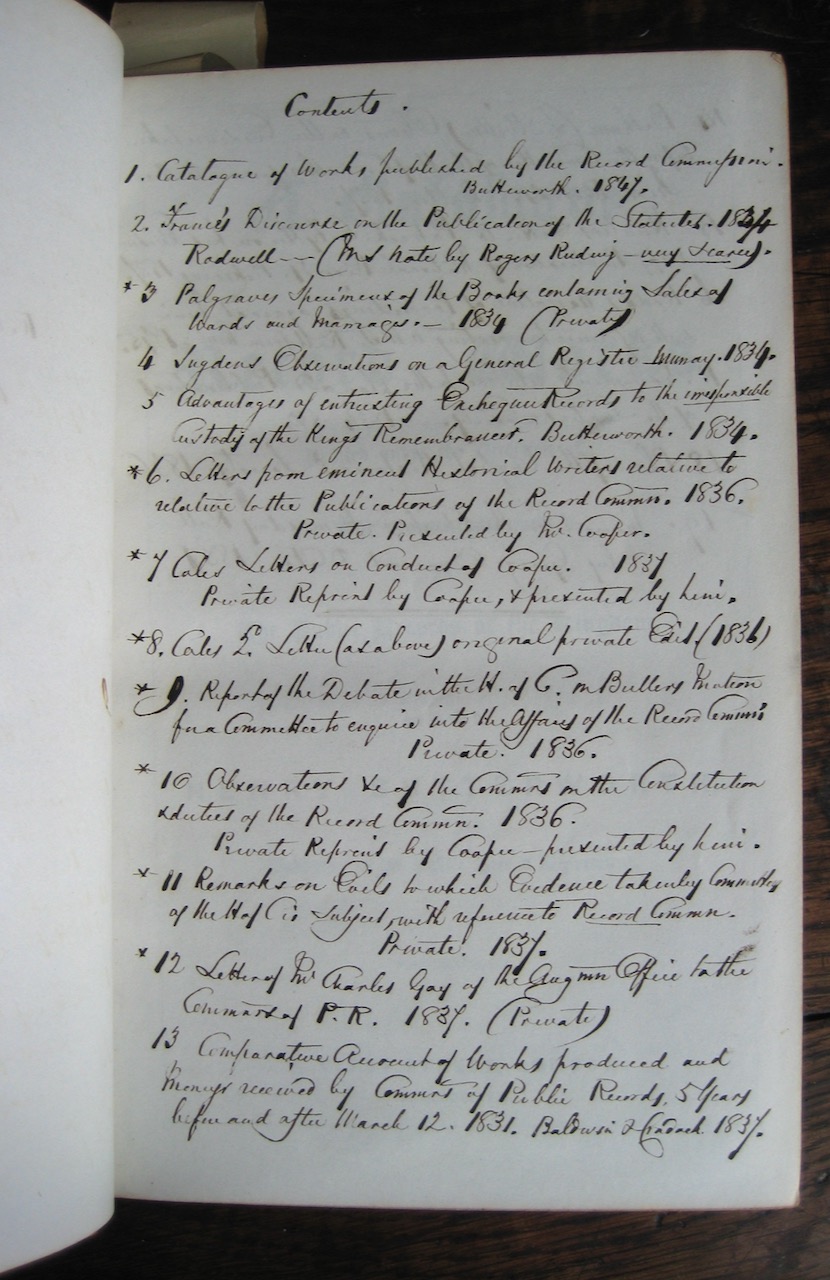 Contents .
1. Catalogue of Works published by the Record Commission.
Butterworth. 1837.
2. France's Discourse on the Publication of the Statutes. 1834
Rodwell — (MS note by Rogers Ruding — very scarce).
* 3 Palgraves Specimens of the Books containing Sales of
Wards and Marriages. — 1834 (Private)
4 Sugdens Observations on a General Register — Murray. 1834.
5 Advantages of entrusting Exchequer Records to the irresponsible
Custody of the Kings Remembrancer. Butterworth. 1834.
* 6. Letters from eminent Historical Writers relative to
relative to the Publications of the Record Commn. 1836.
Private. Presented by Mr. Cooper.
* 7 Coles Letters on Conduct of Cooper. 1837
Private Reprint by Cooper, & presented by him.
* 8. Coles 2d. Letter (as above) original private Edit (1836)
* 9. Report of the Debate in the H. of C. on Bullers Motion
for a Committee to enquire into the Affairs of the Record Commn
Private. 1836.
* 10 Observations &c of the Commrs on the Constitution
& duties of the Record Commn. 1836.
Private Reprint by Cooper — presented by him.
* 11 Remarks on Evils to which Evidence taken by Committees
of the H of C is Subject, with reference to Record Commn.
Private. 1837.
* 12 Letter of Mr Charles Gay of the Augmn Office to the
Commrs of P. R. 1837. (Private)
13 Comparative Account of Works produced and
Moneys received by Commrs of Public Records, 5 Years
before and after March 12. 1831. Baldwin & Cradock. 1837.